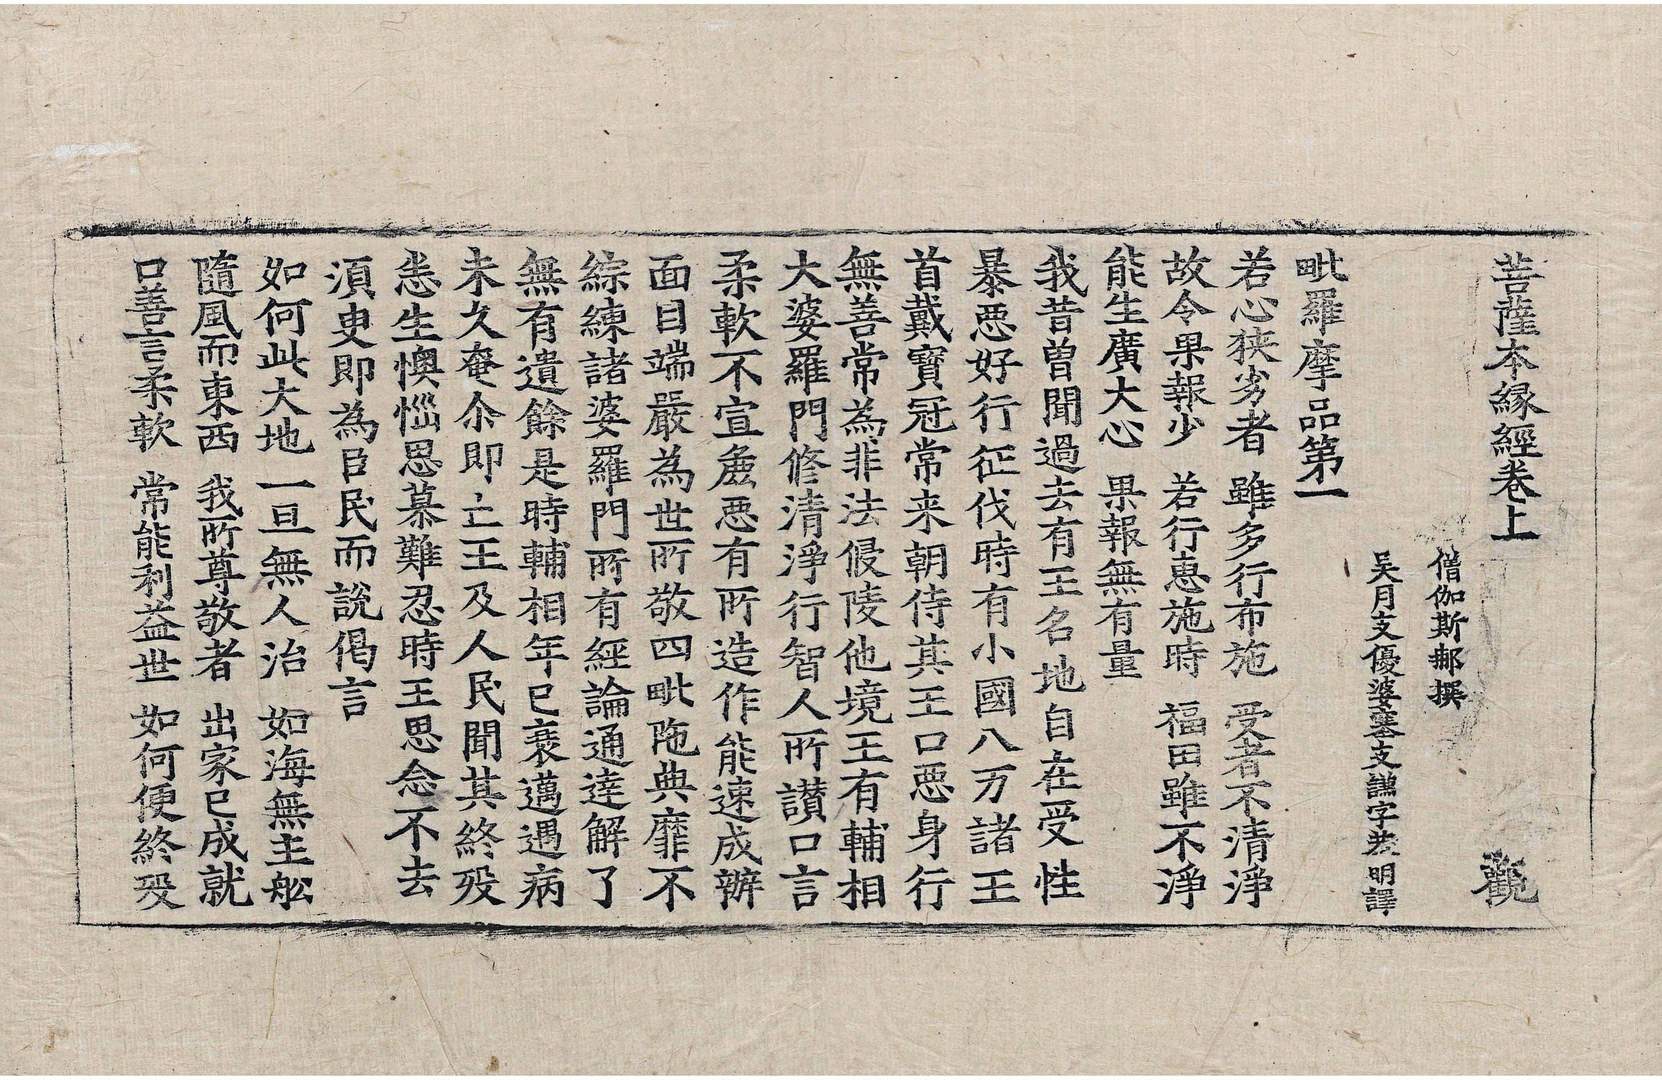 菩薩本緣經卷上 觀
僧伽斯郍撰
吳月支優婆塞支謙字恭明譯
毗羅摩品第一
若心狹劣者 雖多行布施 受者不清淨
故令果報少 若行惠施時 福田雖不淨
能生廣大心 果報無有量
我昔曾聞過去有王名地自在受性
暴惡好行征伐時有小國八万諸王
首戴寶冠常来朝侍其王口惡身行
無善常為非法侵陵他境王有輔相
大婆羅門修清淨行智人所讃口言
柔軟不宣麁惡有所造作能速成辦
面目端嚴為世所敬四毗陁典靡不
綜練諸婆羅門所有經論通達解了
無有遺餘是時輔相年已衰邁遇病
未久奄尒即亡王及人民聞其終歿
悉生懊惱思慕難忍時王思念不去
須臾即為臣民而說偈言
如何此大地 一旦無人治 如海無主舩
隨風而東西 我所尊敬者 出家已成就
口善言柔軟 常能利益世 如何便終歿